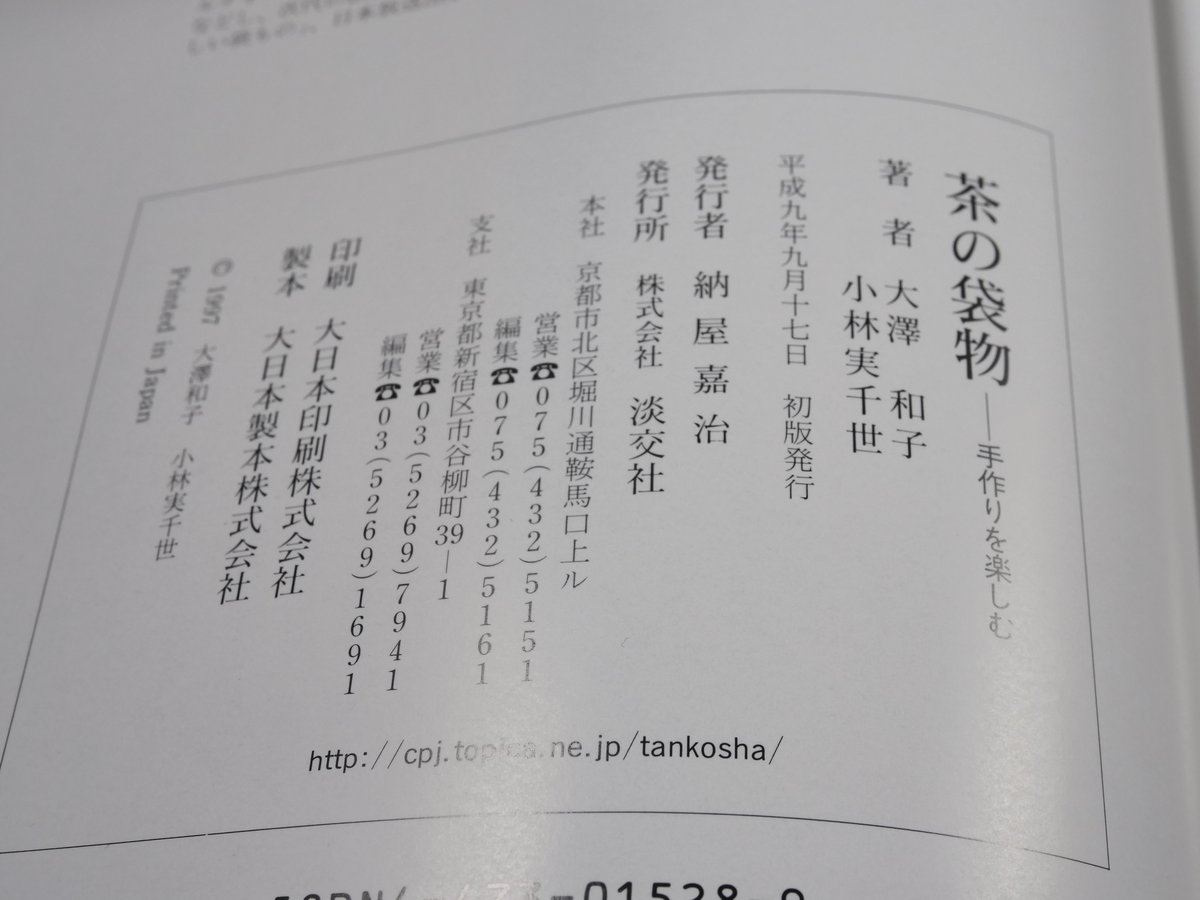 茶の袋物――手作りを楽しむ
著者 大澤 和子
小林実千世
平成九年九月十七日 初版発行
発行者 納屋嘉治
発行所 株式会社 淡交社
本社 京都市北区堀川通鞍馬口上ル
営業☎075(432)5151
編集☎075(432)5161
支社 東京都新宿区市谷柳町39―1
営業☎03(5269)7941
編集☎03(5269)1691
印刷 大日本印刷株式会社
製本 大日本製本株式会社
© 1997 大澤和子 小林実千世
Printed in Japan
http://cpj.topica.ne.jp/tankosha/
01528-9